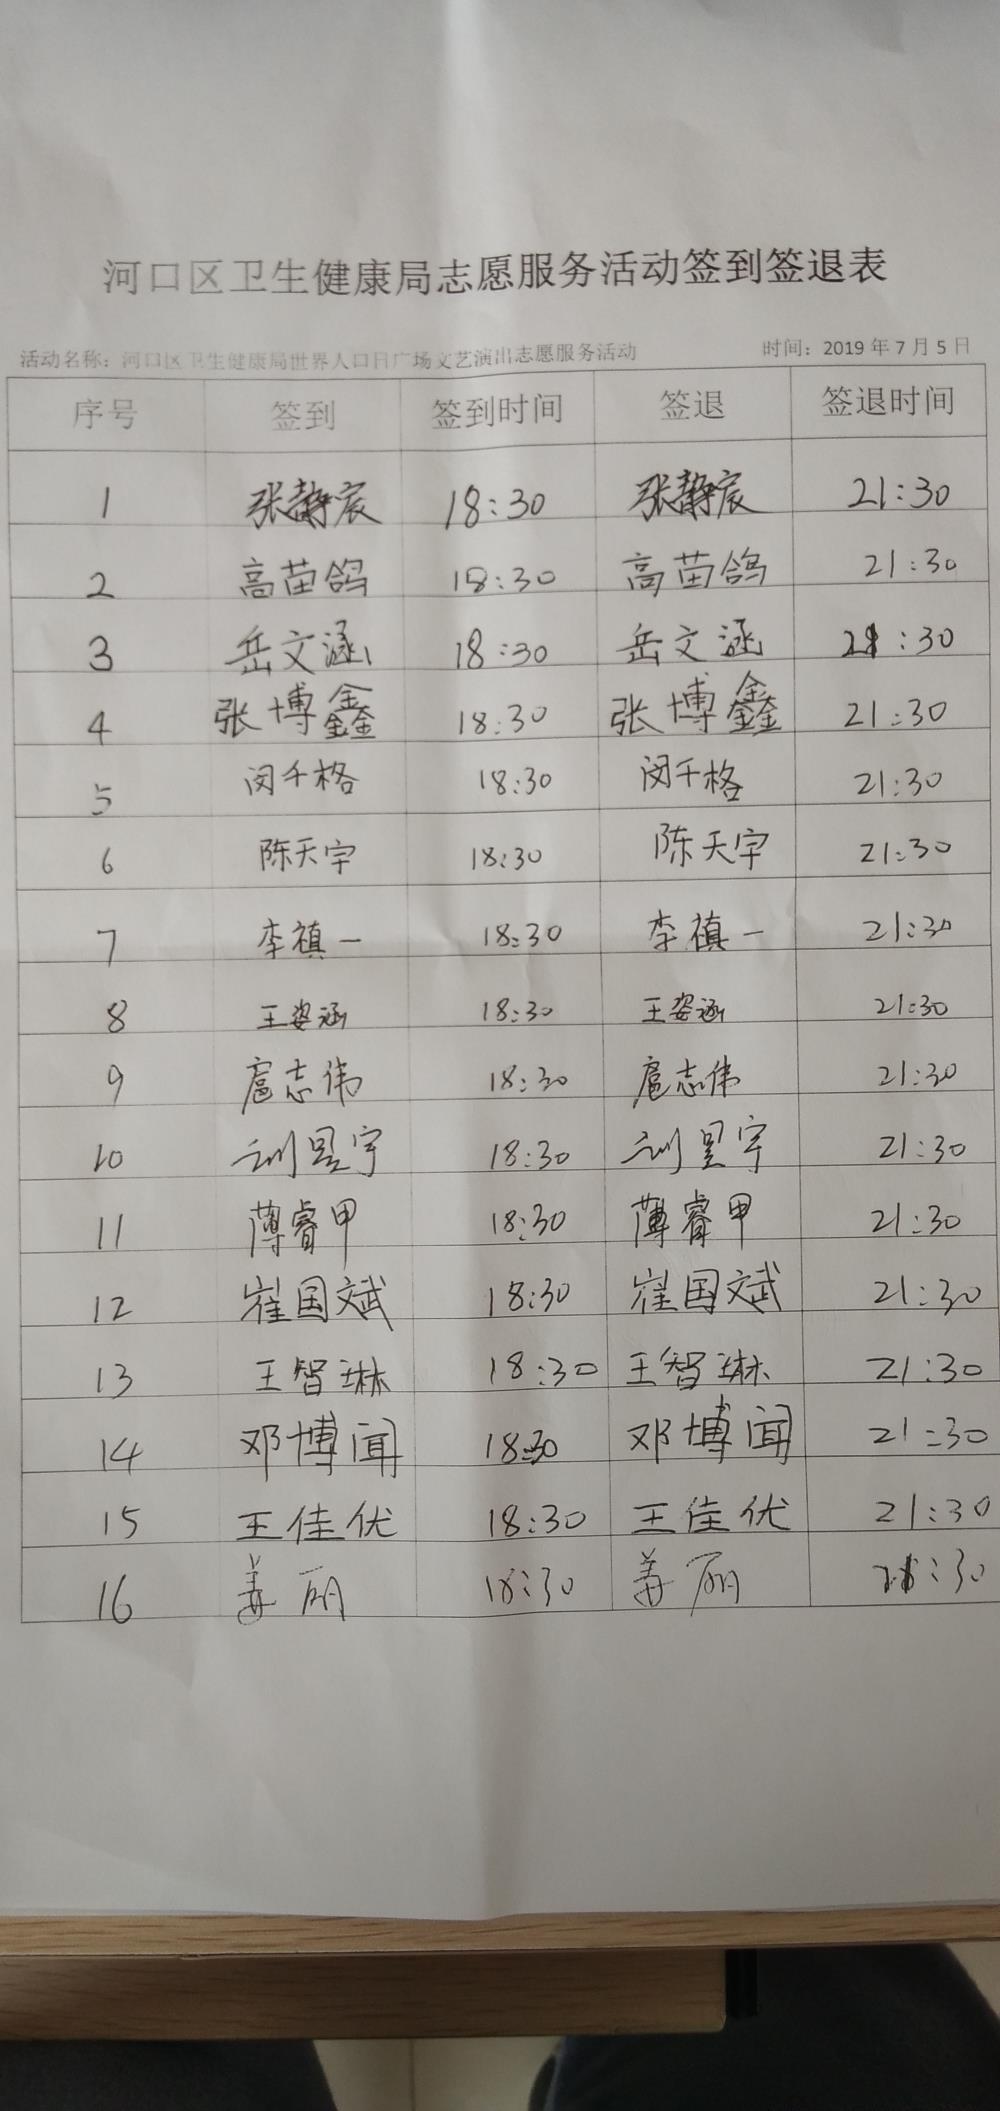 河口区卫生健康局志愿服务活动签到签退表
活动名称：河口区卫生健康局世界人口日广场文艺演出志愿服务活动 时间：2019年7月5日
序号 签到 签到时间 签退 签退时间
1 张静宸 18:30 张静宸 21:30
2 高苗鸽 18:30 高苗鸽 21:30
3 岳文涵 18:30 岳文涵 21:30
4 张博鑫 18:30 张博鑫 21:30
5 闵千格 18:30 闵千格 21:30
6 陈天宇 18:30 陈天宇 21:30
7 李禛一 18:30 李禛一 21:30
8 王姿涵 18:30 王姿涵 21:30
9 扈志伟 18:30 扈志伟 21:30
10 18:30 21:30
11 薄睿甲 18:30 薄睿甲 21:30
12 崔国斌 18:30 崔国斌 21:30
13 王智琳 18:30 王智琳 21:30
14 邓博闻 18:30 邓博闻 21:30
15 王佳优 18:30 王佳优 21:30
16 姜丽 18:30 姜丽 21:30